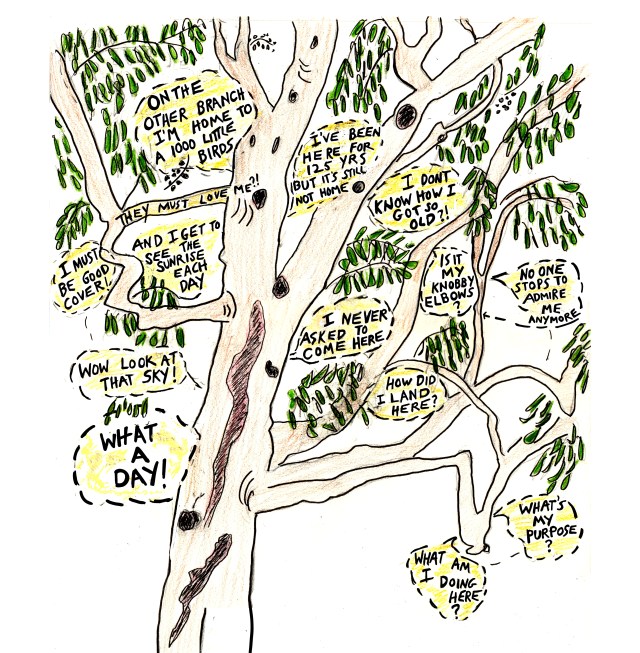 ON THE
OTHER BRANCH
I'M HOME TO
A 1000 LITTLE
BIRDS
THEY MUST LOVE ME?!
I'VE BEEN
HERE FOR
125 YRS
BUT IT'S STILL
NOT HOME
I DONT
KNOW HOW I
GOT SO
OLD?!
AND I GET TO
SEE THE
SUNRISE
EACH
DAY
I MUST
BE GOOD
COVER!
IS IT
MY
KNOBBY
ELBOWS
?
NO ONE
STOPS TO
ADMIRE
ME
ANYMORE
I NEVER
ASKED TO
COME HERE
WOW LOOK AT
THAT SKY!
HOW DID
I LAND
HERE?
WHAT
A
DAY!
WHAT'S
MY
PURPOSE
?
WHAT AM
I DOING
HERE
?